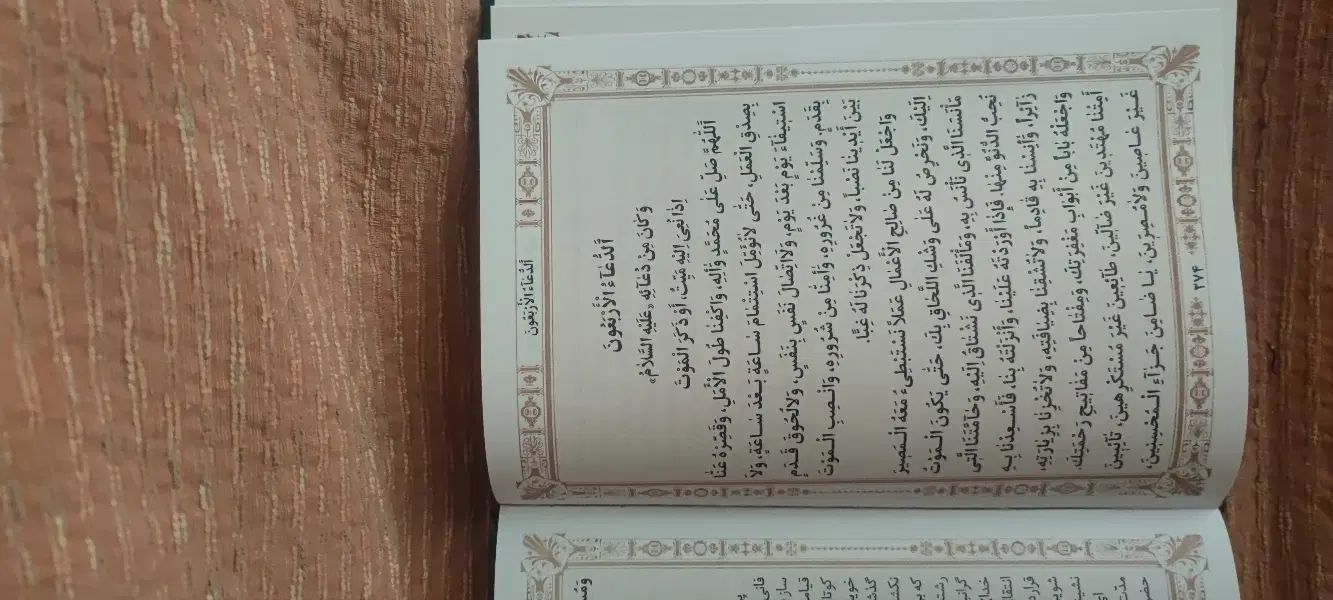 اَلدُّعَاءُ الْأَرْبَعُونَ
اَلدُّعَاءُ الْأَرْبَعُونَ
وَ كَانَ مِنْ دُعَآئِهِ «عَلَيْهِ السَّلاَمُ»
اِذَا نُعِىَ اِلَيْهِ مَيِّتٌ، أَوْ ذَكَرَ الْمَوْتَ
اَللَّهُمَّ صَلِّ عَلَى مُحَمَّدٍ وَ الِهِ، وَاكْفِنَا طُولَ الْأَمَلِ، وَقَصِّرْهُ عَنَّا
بِصِدْقِ الْعَمَلِ، حَتَّى لاَنُؤَمِّلَ اسْتِتْمَامَ سَاعَةٍ بَعْدَ سَاعَةٍ، وَلاَ
اسْتِيفَآءَ يَوْمٍ بَعْدَ يَوْمٍ، وَلاَ اتِّصَالَ نَفَسٍ بِنَفَسٍ، وَلاَلُحُوقَ قَدَمٍ
بِقَدَمٍ، وَسَلِّمْنَا مِنْ غُرُورِهِ، وَامِنَّا مِنْ شُرُورِهِ، وَانْصِبِ الْمَوْتَ
بَيْنَ أَيْدِينَا نَصْباً، وَلاَتَجْعَلْ ذِكْرَنَا لَهُ غِبًّا.
وَاجْعَلْ لَنَا مِنْ صَالِحِ الْأَعْمَالِ عَمَلاً نَسْتَبْطِىءُ مَعَهُ الْمَصِيرَ
اِلَيْكَ، وَنَحْرِصُ لَهُ عَلَى وَشْكِ اللَّحَاقِ بِكَ، حَتَّى يَكُونَ الْمَوْتُ
مَأْنَسَنَا الَّذِى نَأْنَسُ بِهِ، وَمَأْلَفَنَا الَّذِى نَشْتَاقُ اِلَيْهِ، وَحَآمَّتَنَا الَّتِى
نُحِبُّ الدُّنُوَّ مِنْهَا، فَإِذَا أَوْرَدْتَهُ عَلَيْنَا، وَأَنْزَلْتَهُ بِنَا، فَأَسْعِدْنَا بِهِ
زَآئِراً، وَ انِسْنَا بِهِ قَادِماً، وَلاَتُشْقِنَا بِضِيَافَتِهِ، وَلاَتُخْزِنَا بِزِيَارَتِهِ،
وَاجْعَلْهُ بَاباً مِنْ أَبْوَابِ مَغْفِرَتِكَ، وَمِفْتَاحاً مِنْ مَفَاتِيحِ رَحْمَتِكَ،
أَمِتْنَا مُهْتَدِينَ غَيْرَ ضَآلِّينَ، طَآئِعِينَ غَيْرَ مُسْتَكْرِهِينَ، تَآئِبِينَ
غَيْرَ عَاصِينَ وَلاَمُصِرِّينَ، يَا ضَامِنَ جَزَآءِ الْمُحْسِنِينَ،
٢٧۴